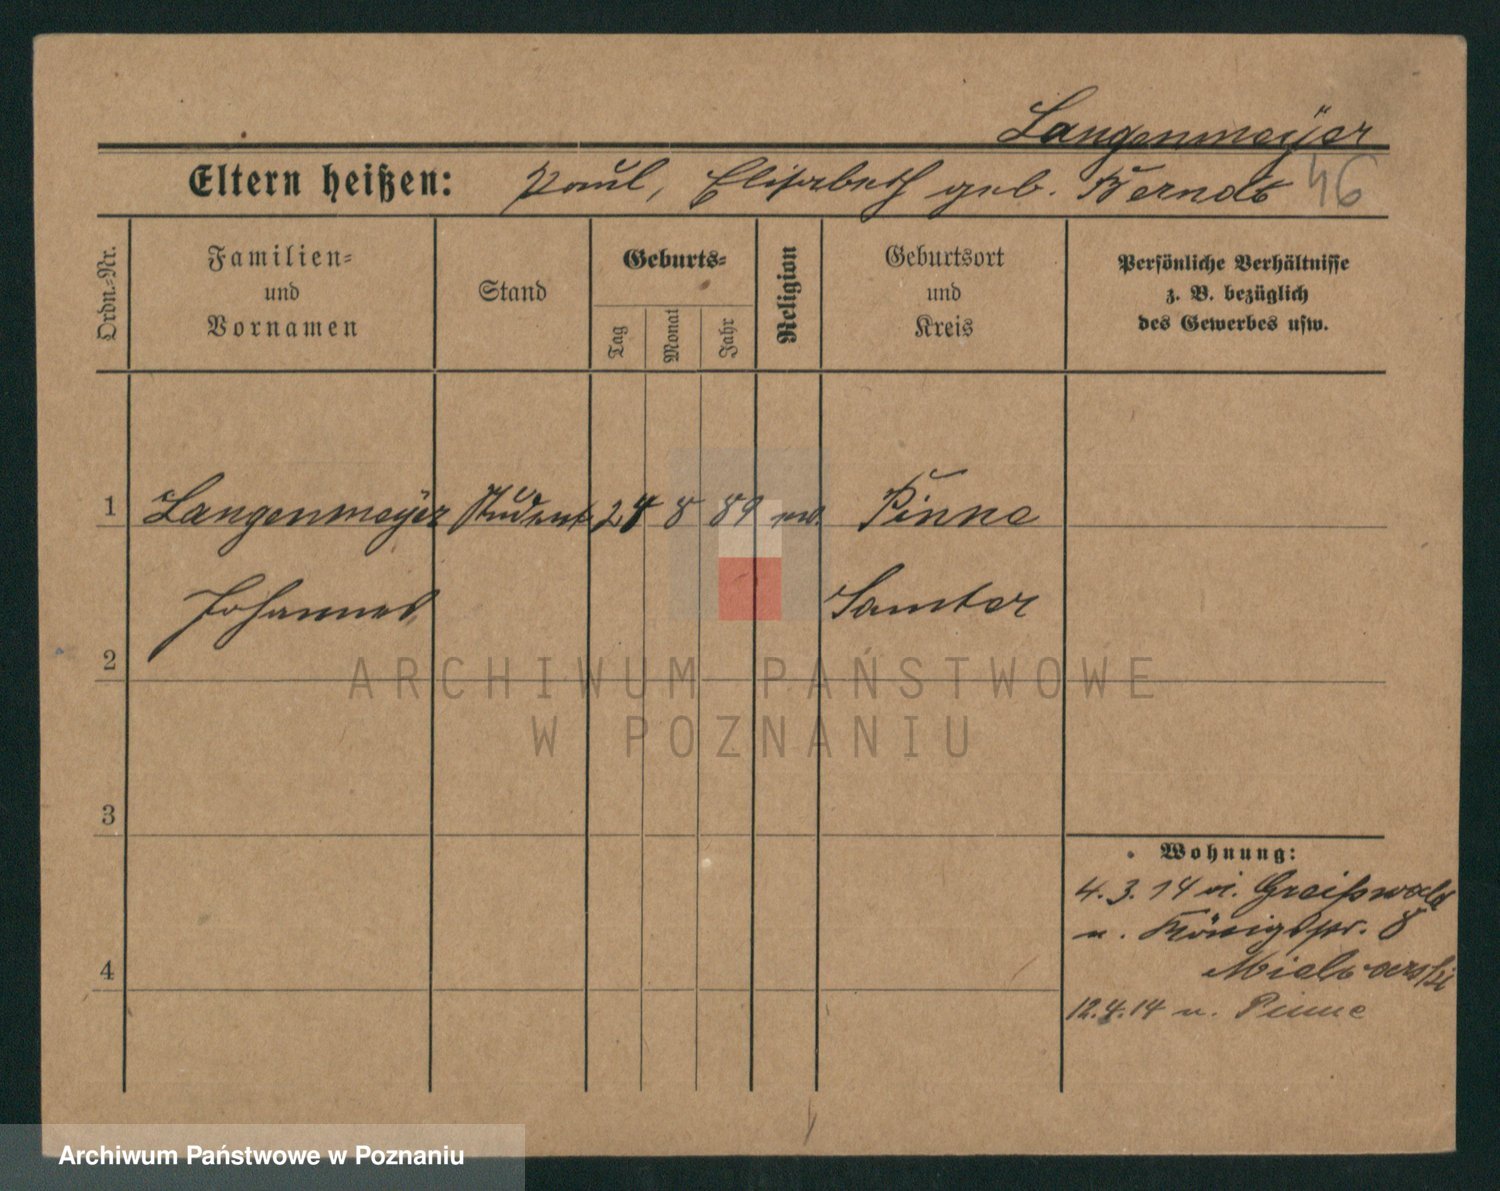 Langenmeÿer
Eltern heißen: Paul, Elisabeth geb. Berndt 46
Ordn.-Nr.
Familien-
und
Vornamen
Stand
Geburts-
Tag
Monat
Jahr
Religion
Geburtsort
und
Kreis
Persönliche Verhältnisse
z. B. bezüglich
des Gewerbes usw.
1 Langenmeÿer Student 28 8 89 Pinne
Johannes Samter
2
ARCHIWUM PAŃSTWOWE
W POZNANIU
3
Wohnung:
4.3.14 v. Greifswald
n. Königspl. 8
12.4.14 n. Pinne
4
Archiwum Państwowe w Poznaniu